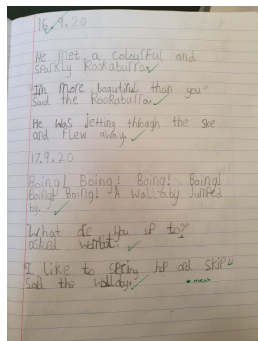 16.9.20
He met a colourful and
sparkly kookaburra.
"I'm more beautiful than you"
said the kookaburra.
He was jetting through the
and flew away.
17.9.20
Boing! Boing! Boing! Boing!
Boing! Boing! A wallaby jumped
by.
What are you up to?
asked wombat.
I like to spring hop and skip
said the